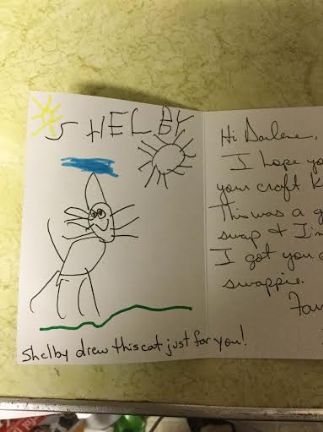 SHELBY
Shelby drew this cat just for you!
Hi Darlene,
I hope yo
your craft K
This was a g
swap & I'm
I got you a
swappie.